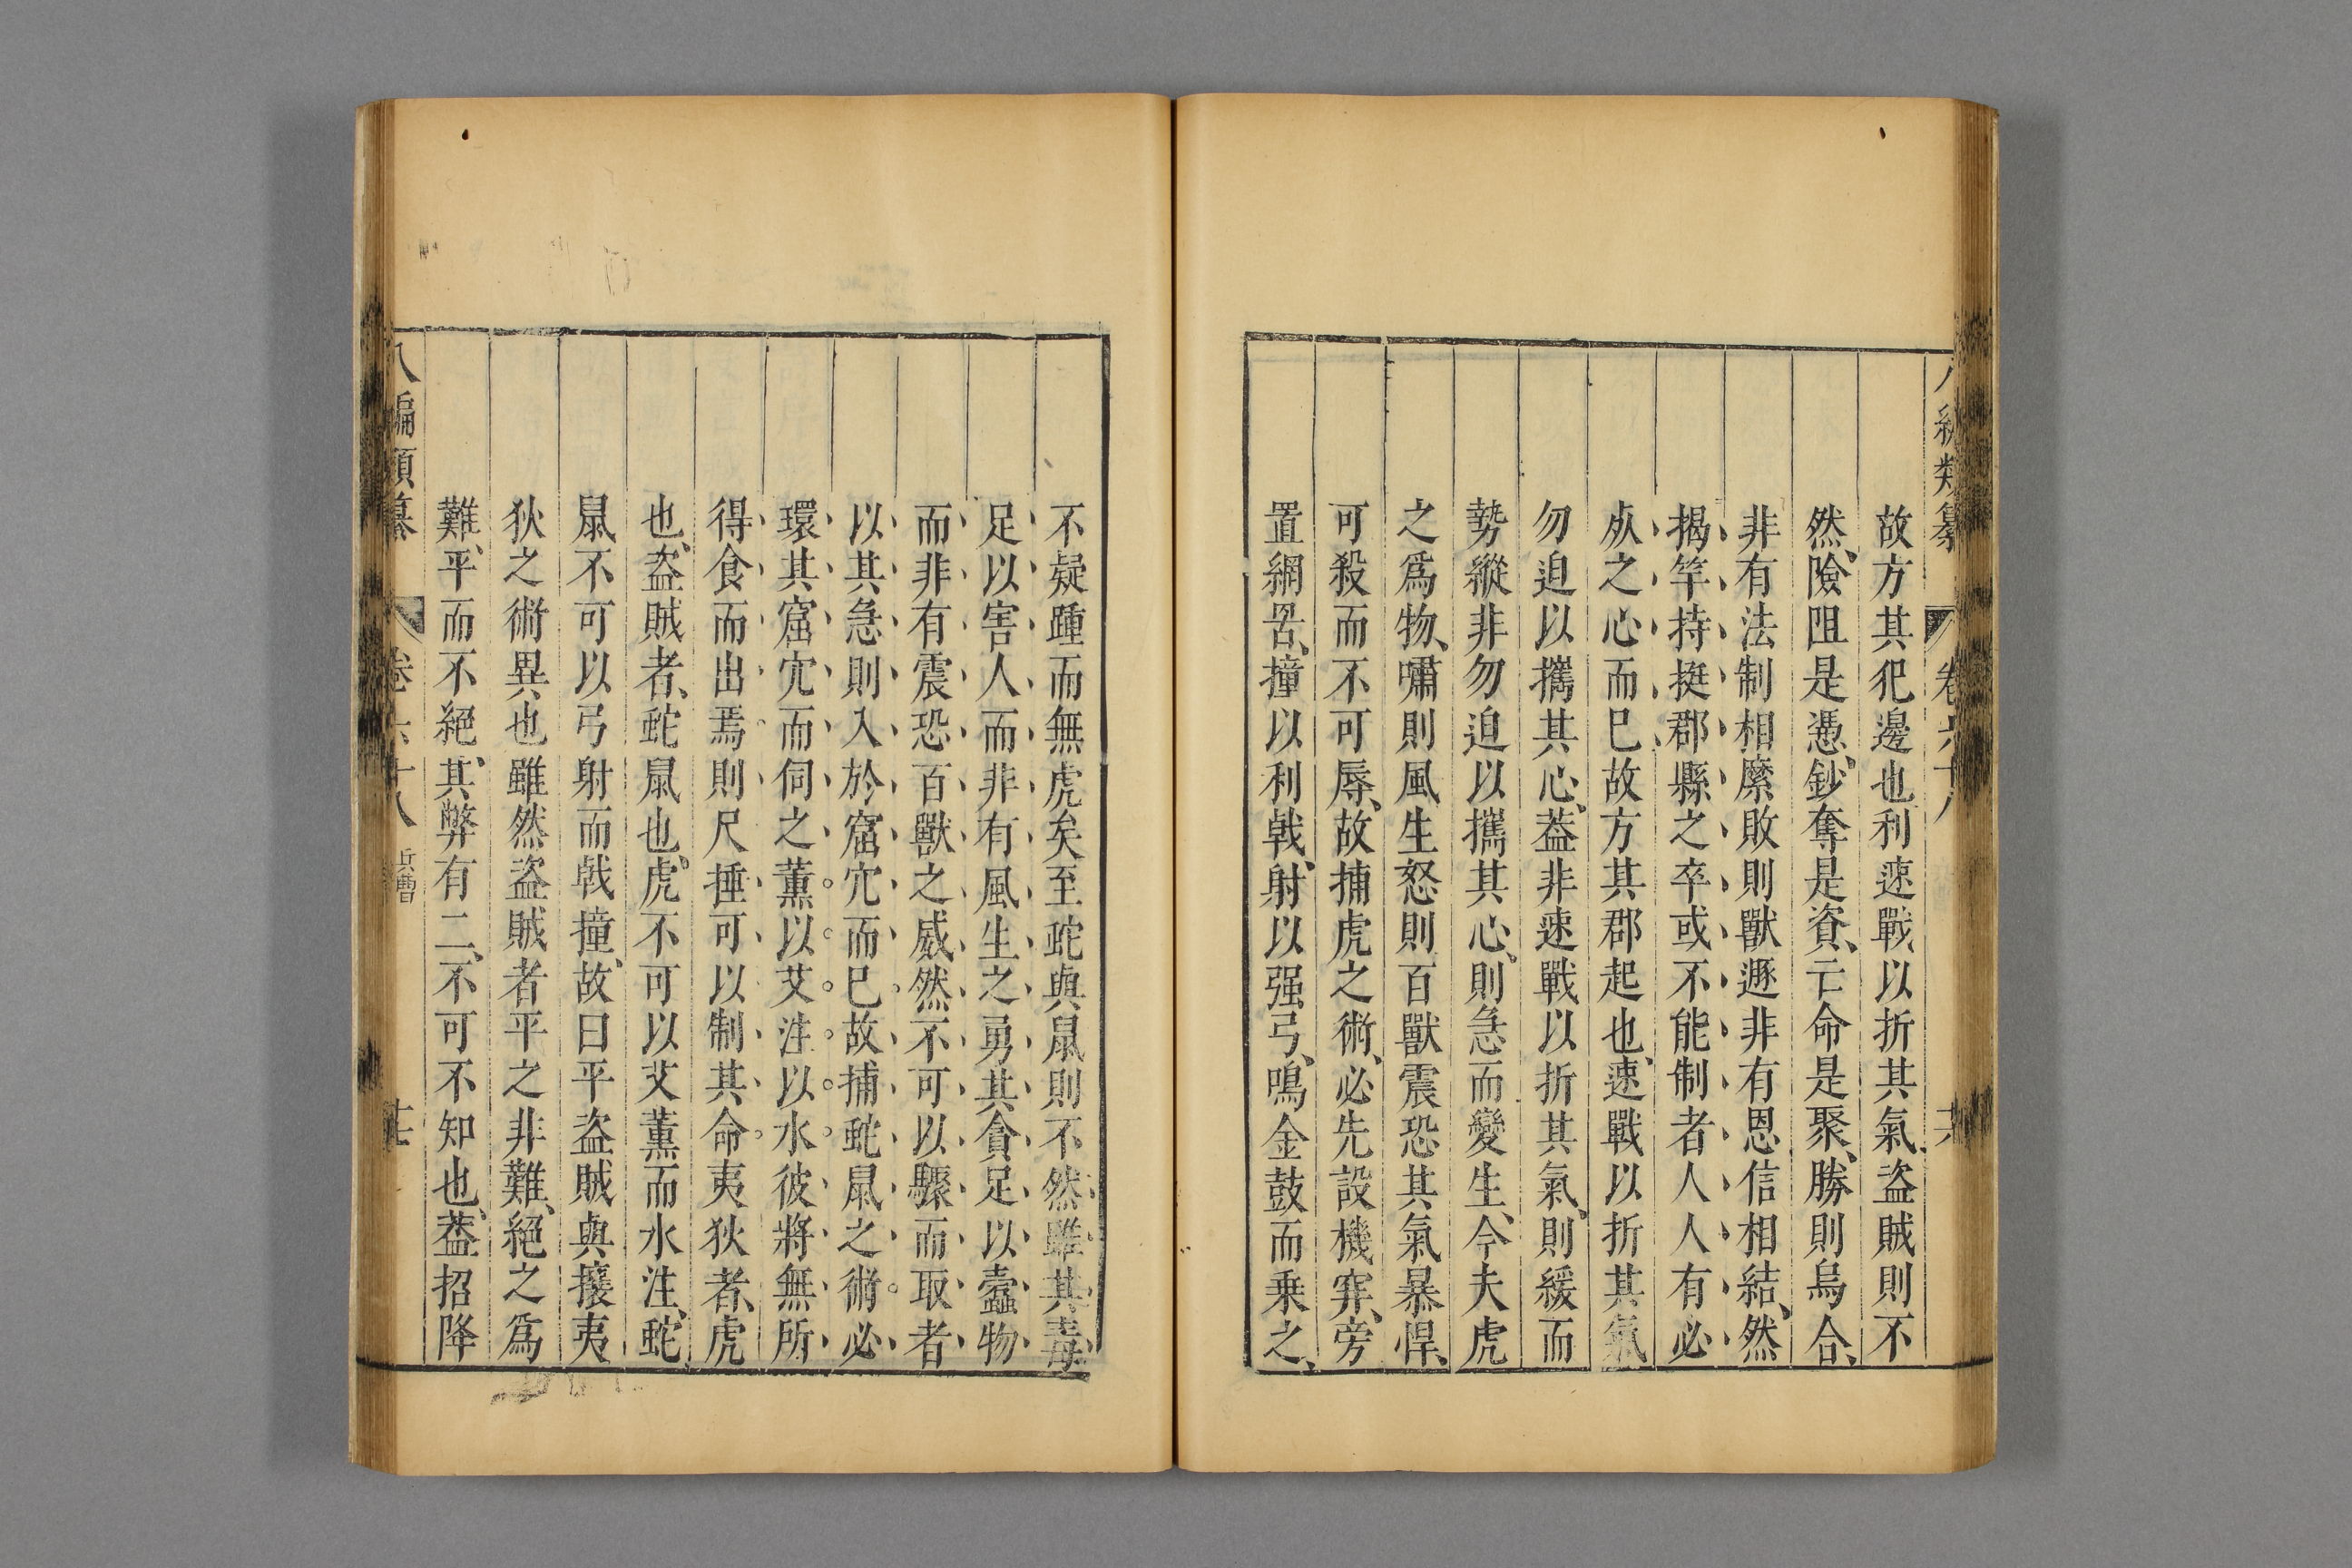 八編類纂 卷六十八 六
故方其犯邊也利速戰以折其氣盗賊則不
然、險阻是憑、鈔奪是資、亡命是聚、勝則烏合、
非有法制相縻敗則獸遯非有恩信相結、然
揭竿持挺郡縣之卒或不能制者人人有必
㱾之心而巳、故方其郡起也、速戰以折其氣
勿迫以攜其心、葢非速戰以折其氣、則緩而
勢縱非勿迫以攜其心、則急而變生、今夫虎
之爲物、嘯則風生怒則百獸震恐其氣暴悍、
可殺而不可辱、故捕虎之術、必先設機穽、旁
置網罟、撞以利戟、射以强弓、鳴金鼓而乗之、
不疑踵而無虎矣至蛇與鼠則不然雖其毒
足以害人而非有風生之勇其貪足以蠹物
而非有震恐百獸之威然不可以驟而取者
以其急則入於窟穴而巳故捕蛇鼠之術必
環其窟穴而伺之薰以艾注以水彼將無所
得食而出焉則尺捶可以制其命夷狄者、虎
也、盗賊者、蛇鼠也、虎不可以艾薰而水注、蛇
鼠不可以弓射而戟撞、故曰平盗賊與攘夷
狄之術異也雖然盗賊者平之非難、絕之爲
難、平而不絕、其弊有二、不可不知也、葢招降
八編類纂 卷六十八 兵曹